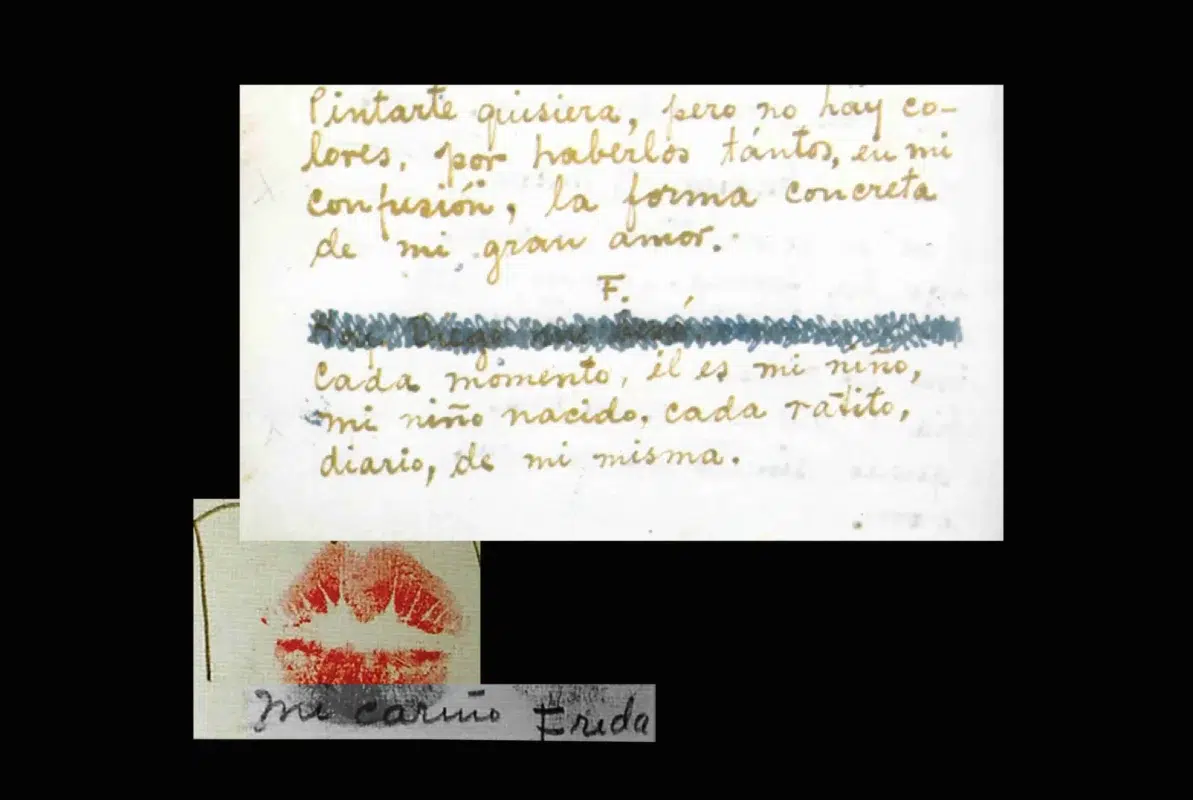 Pintarte quisiera, pero no hay co-
lores, por haberlos tántos, en mi
confusión, la forma concreta
de mi gran amor.
F.
Diego
Cada momento, él es mi niño,
mi niño nacido, cada ratito,
diario, de mi misma.
Mi cariño Frida